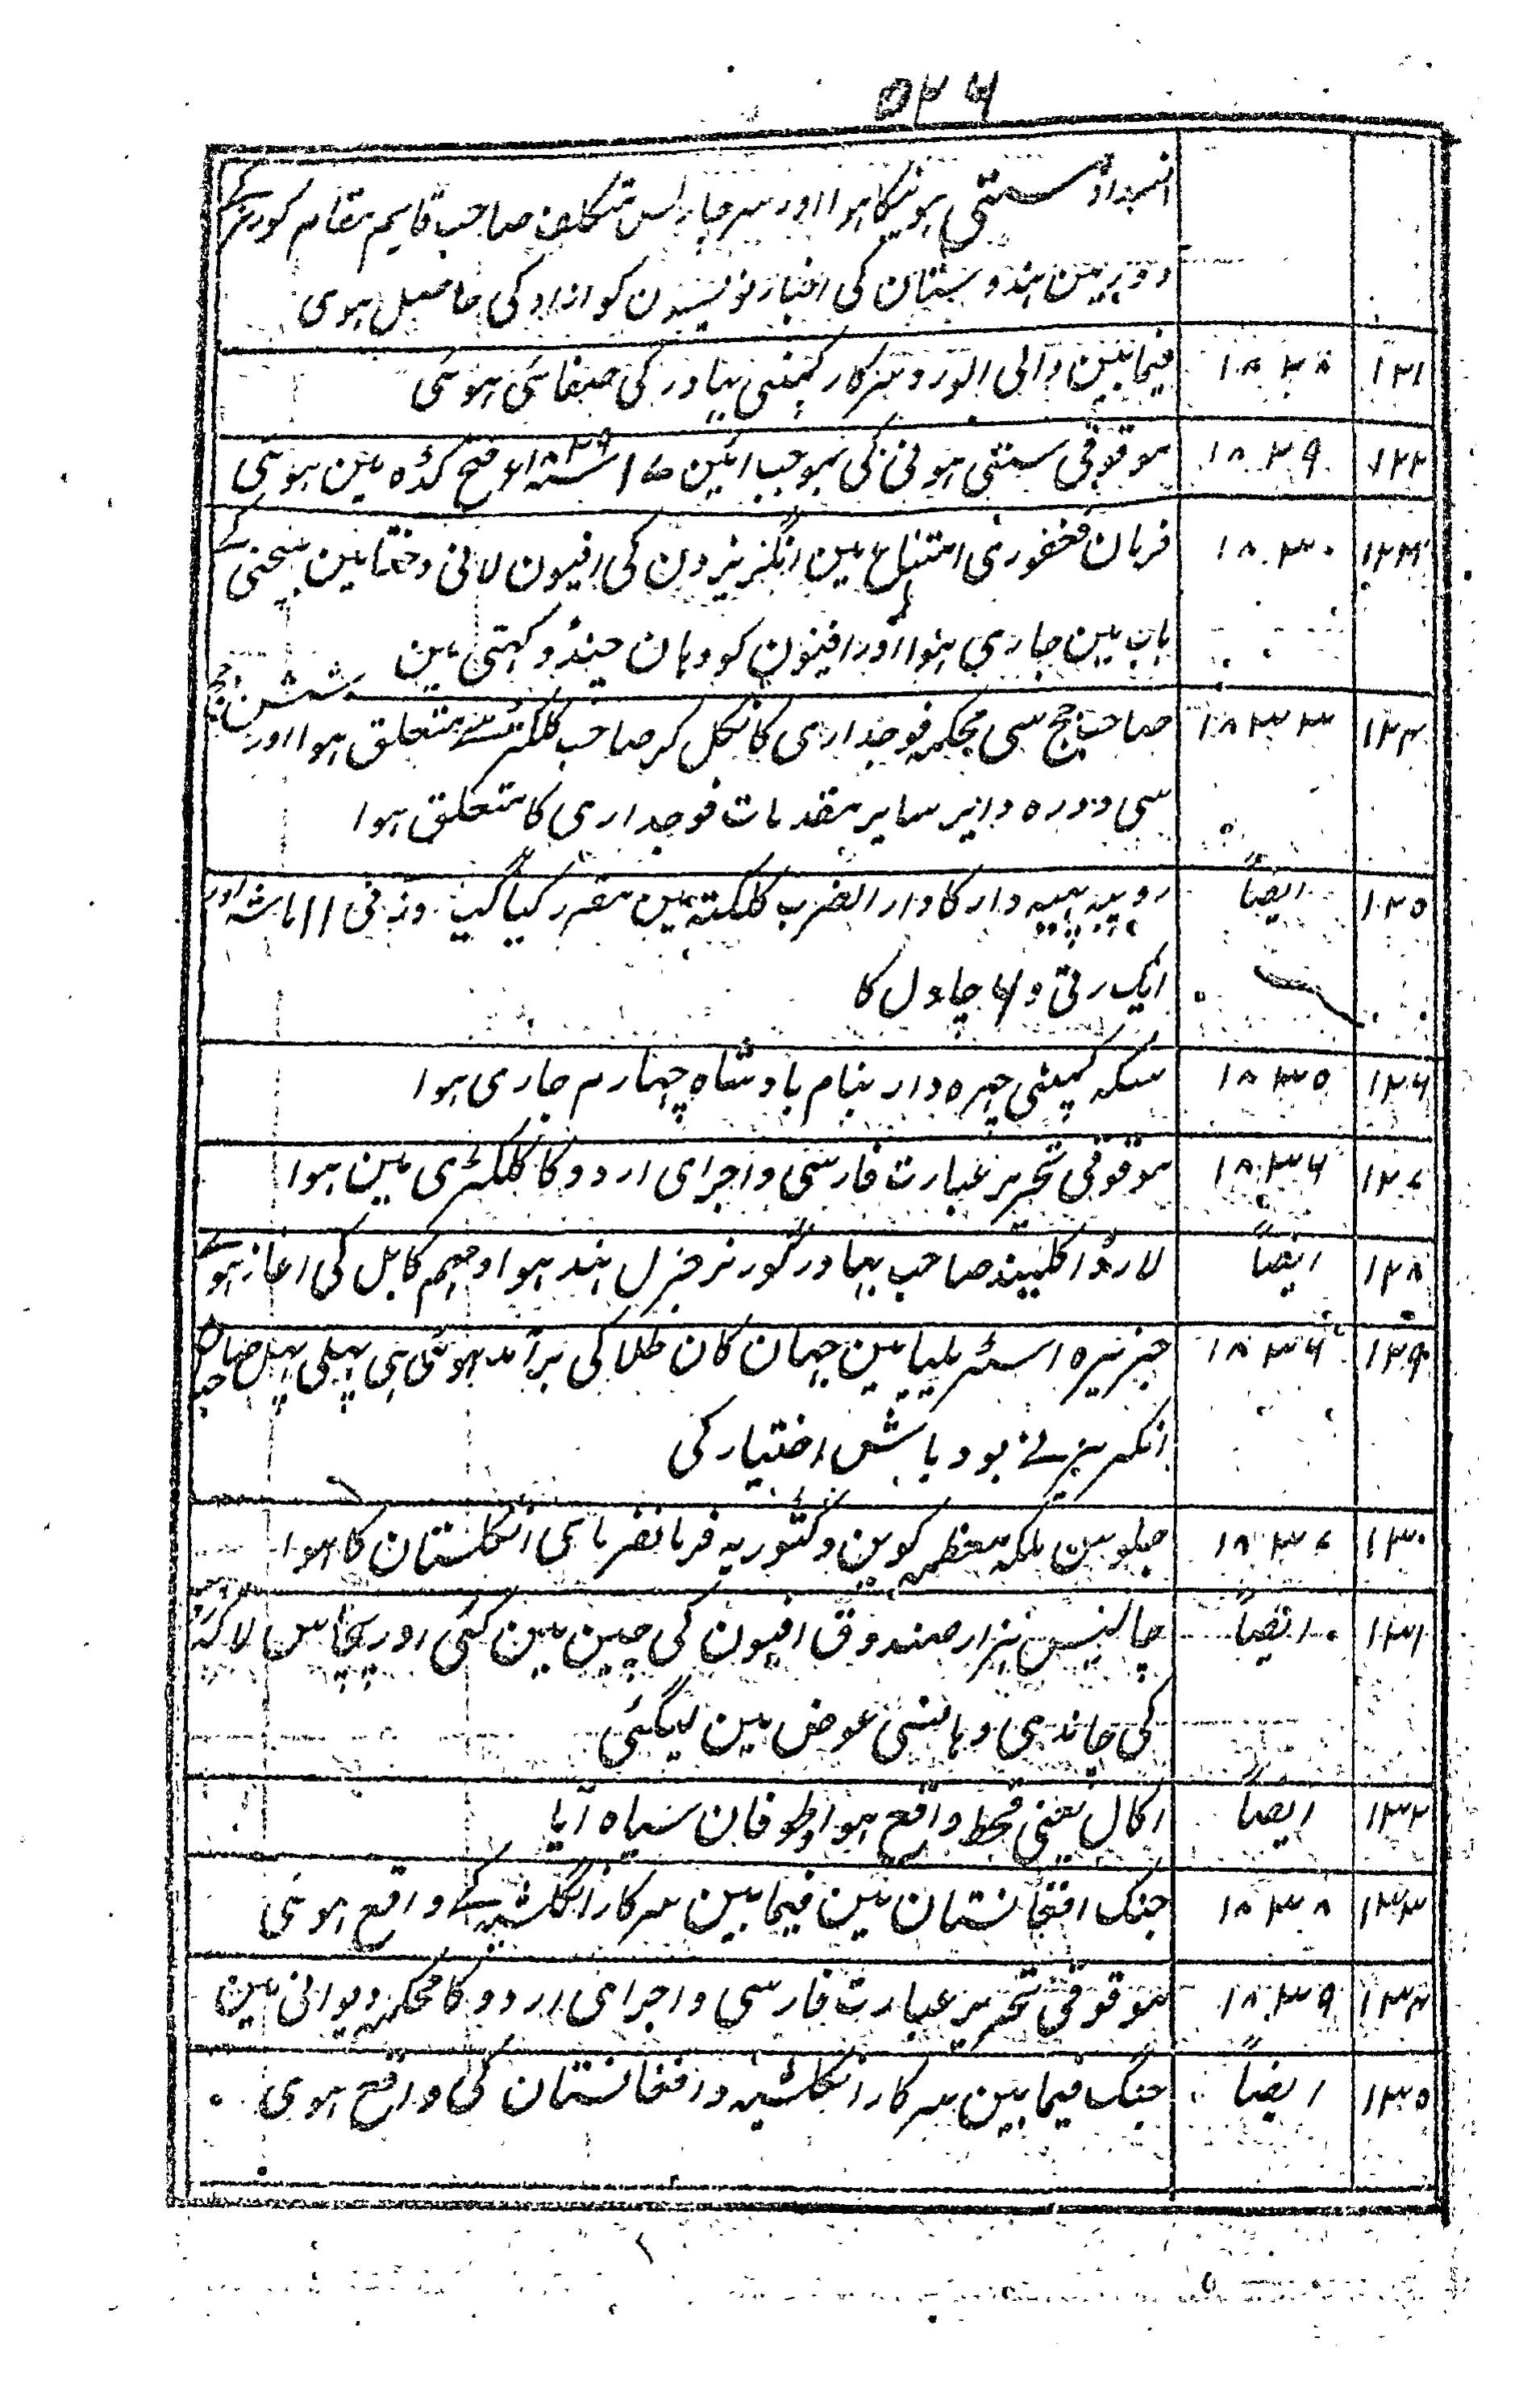 ۵۲۶
انسداد ستی ہونیکا ہوا اور سر چارلس متکلف صاحب قایم مقام گورنر کے
دور مین ہندوستان کی اخبار نویسون کو ازادگی حاصل ہوی
۱۲۱ ۱۸۲۸ فیمابین والی الور و سرکار کمپنی بہادر کی صفائی ہوئی
۱۲۲ ۱۸۲۹ موقوفی ستی ہونی کی بموجب ائین ۱۷ ۱۸۲۹ء مین ہوئی
۱۲۳ ۱۸۳۰ فرمان فغفوری امتناع مین انگریزون کی افیون لانی و ختا مین بیچنی کے
باب مین جاری ہوا اور افیون کو وہان چنڈو کہتی ہین
۱۲۴ ۱۸۳۳ صاحب جج سی محکمہ فوجداری کا نکل کر صاحب کلکٹر سے متعلق ہوا اور سشن جج
سی دورہ دایر سایر مقدمات فوجداری کا متعلق ہوا
۱۲۵ ایضاً روپیہ پہیہ دار کا دار الضرب کلکتہ مین مقرر کیا گیا وزنی ۱۱ ماشہ اور
ایک رتی و ۶ چاول کا
۱۲۶ ۱۸۳۵ سکہ کمپنی چہرہ دار بنام بادشاہ چہارم جاری ہوا
۱۲۷ ۱۸۳۶ موقوفی تحریر عبارت فارسی و اجرای اردو کا کلکٹری مین ہوا
۱۲۸ ایضاً لارڈ اکلینڈ صاحب بہادر گورنر جنرل ہند ہوا و مہم کابل کی اغاز ہوئے
۱۲۹ ۱۸۳۶ جزیرہ اسٹریلیا مین جہان کان طلا کی برآمد ہوئی ہی پہلی پہل صاحبان
انگریز نے بود باش اختیار کی
۱۳۰ ۱۸۳۷ جلوس ملکہ معظمہ کوین وکٹوریہ فرمانفرمای انگلستان کا ہوا
۱۳۱ ایضاً چالیس ہزار صندوق افیون کی چین مین گئی اور پچاس لاکہ روپیہ
کی چاندی وہانسی عوض مین لیگئی
۱۳۲ ایضاً اکال یعنی قحط واقع ہوا و طوفان سیاہ آیا
۱۳۳ ۱۸۳۸ جنگ افغانستان مین فیمابین سرکار انگلشیہ کے واقع ہوئی
۱۳۴ ۱۸۳۹ موقوفی تحریر عبارت فارسی و اجرای اردو کا محکمہ دیوانی مین
۱۳۵ ایضاً جنگ فیمابین سرکار انگلشیہ و افغانستان کی واقع ہوی